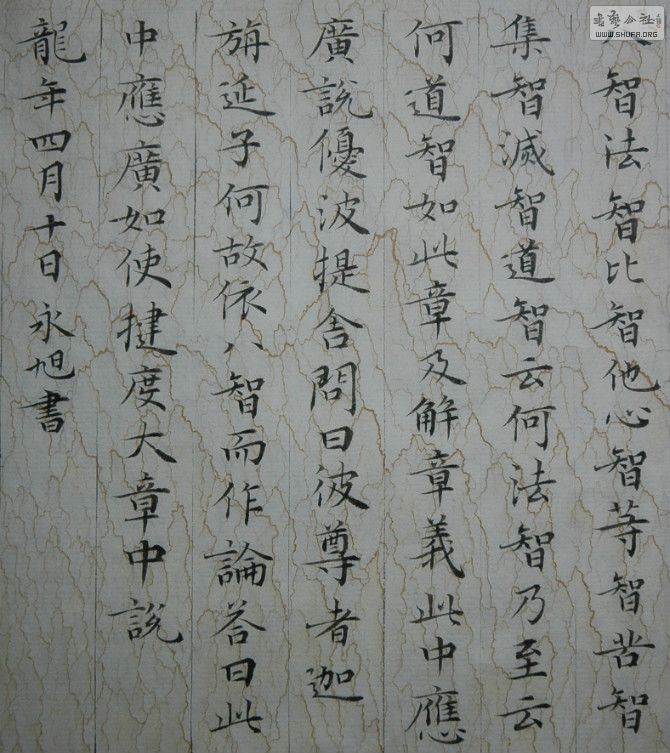 八智法智比智他心智等智苦智
集智滅智道智云何法智乃至云
何道智如此章及解章義此中應
廣說優波提舍問曰彼尊者迦
旃延子何故依八智而作論答曰此
中應廣如使揵度大章中說
龍年四月十日 永旭書
书艺公社
WWW.SHUFA.ORG